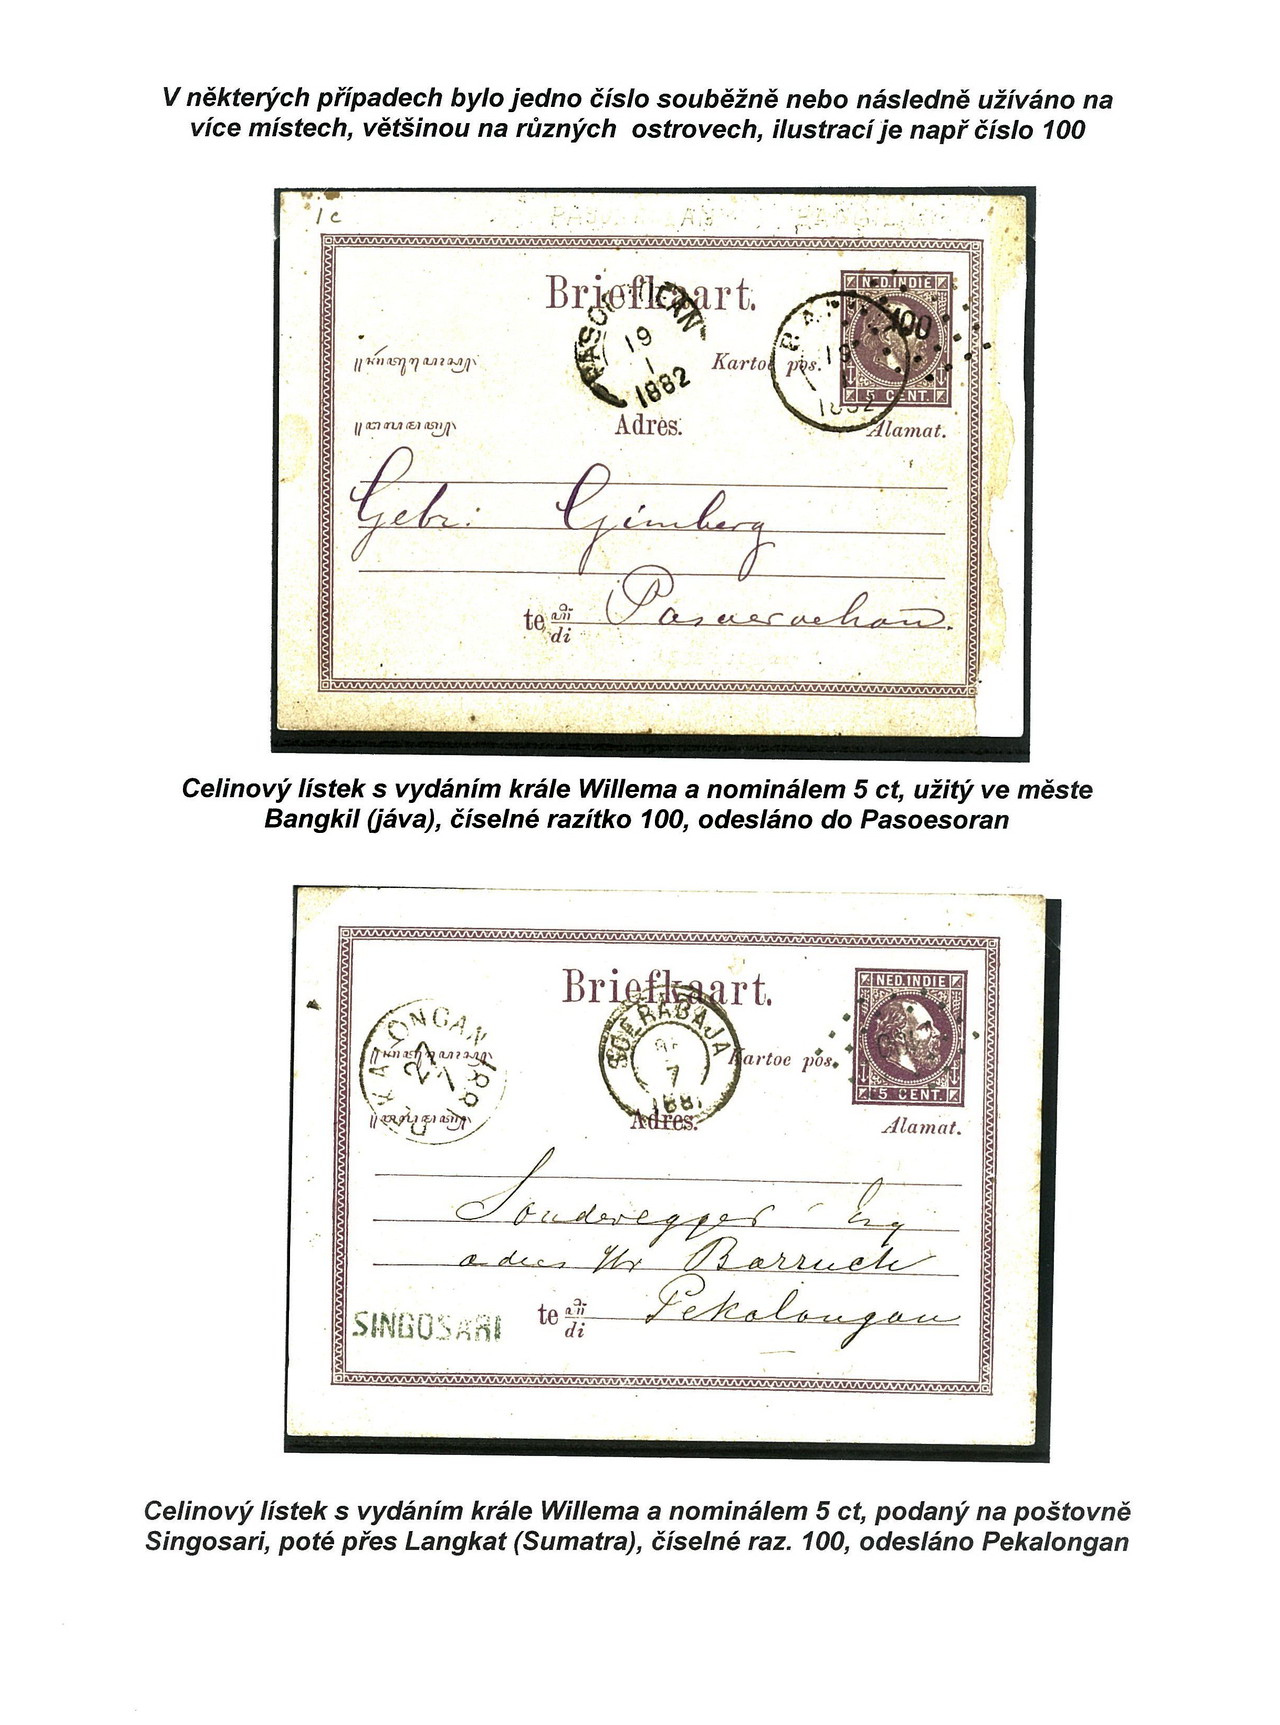 V některých případech bylo jedno číslo souběžně nebo následně užíváno na
více místech, většinou na různých ostrovech, ilustrací je např číslo 100
1 c
Briefkaart.
NED. INDIE
100
19
1
1882
19
1
1882
Kartoe pos.
5 CENT.
Adres.
Alamat.
Gebr: Gimberg
te di Pasoeroehan.
Celinový lístek s vydáním krále Willema a nominálem 5 ct, užitý ve měste
Bangkil (jáva), číselné razítko 100, odesláno do Pasoesoran
Briefkaart.
NED. INDIE
PEKALONGAN
27
7
1881
SOERABAJA
7
Kartoe pos.
5 CENT.
Adres.
Alamat.
Sonderegger
Barruch
te di Pekalongan
SINGOSARI
Celinový lístek s vydáním krále Willema a nominálem 5 ct, podaný na poštovně
Singosari, poté přes Langkat (Sumatra), číselné raz. 100, odesláno Pekalongan